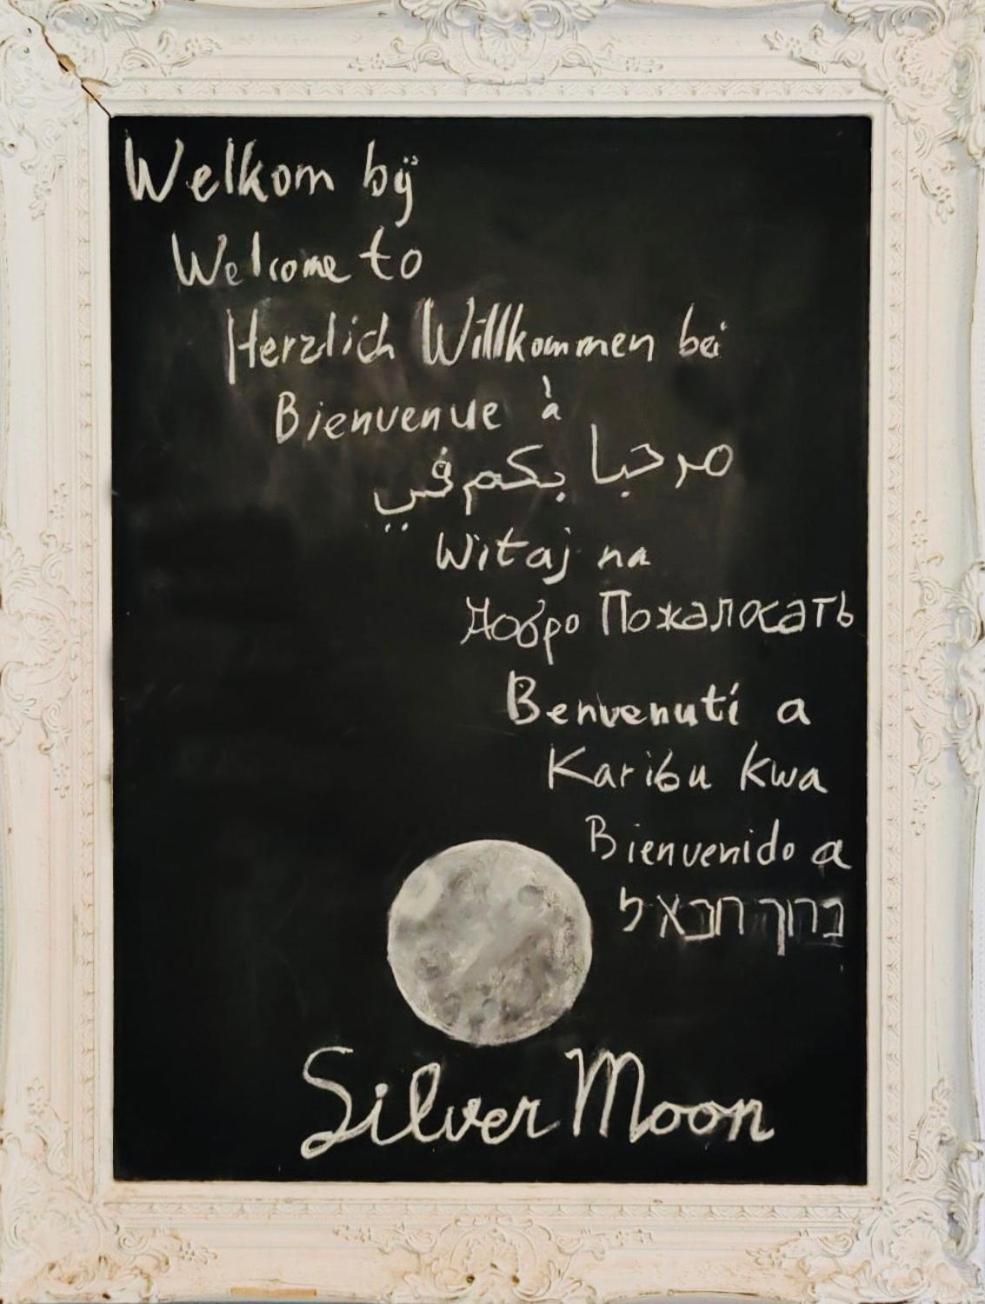 Welkom bÿ
Welcome to
Herzlich Willkommen bei
Bienvenue à
مرحبا بكم في
Witaj na
Добро Пожалосать
Benvenuti a
Karibu kwa
Bienvenido a
ברוך חבא ל
Silver Moon